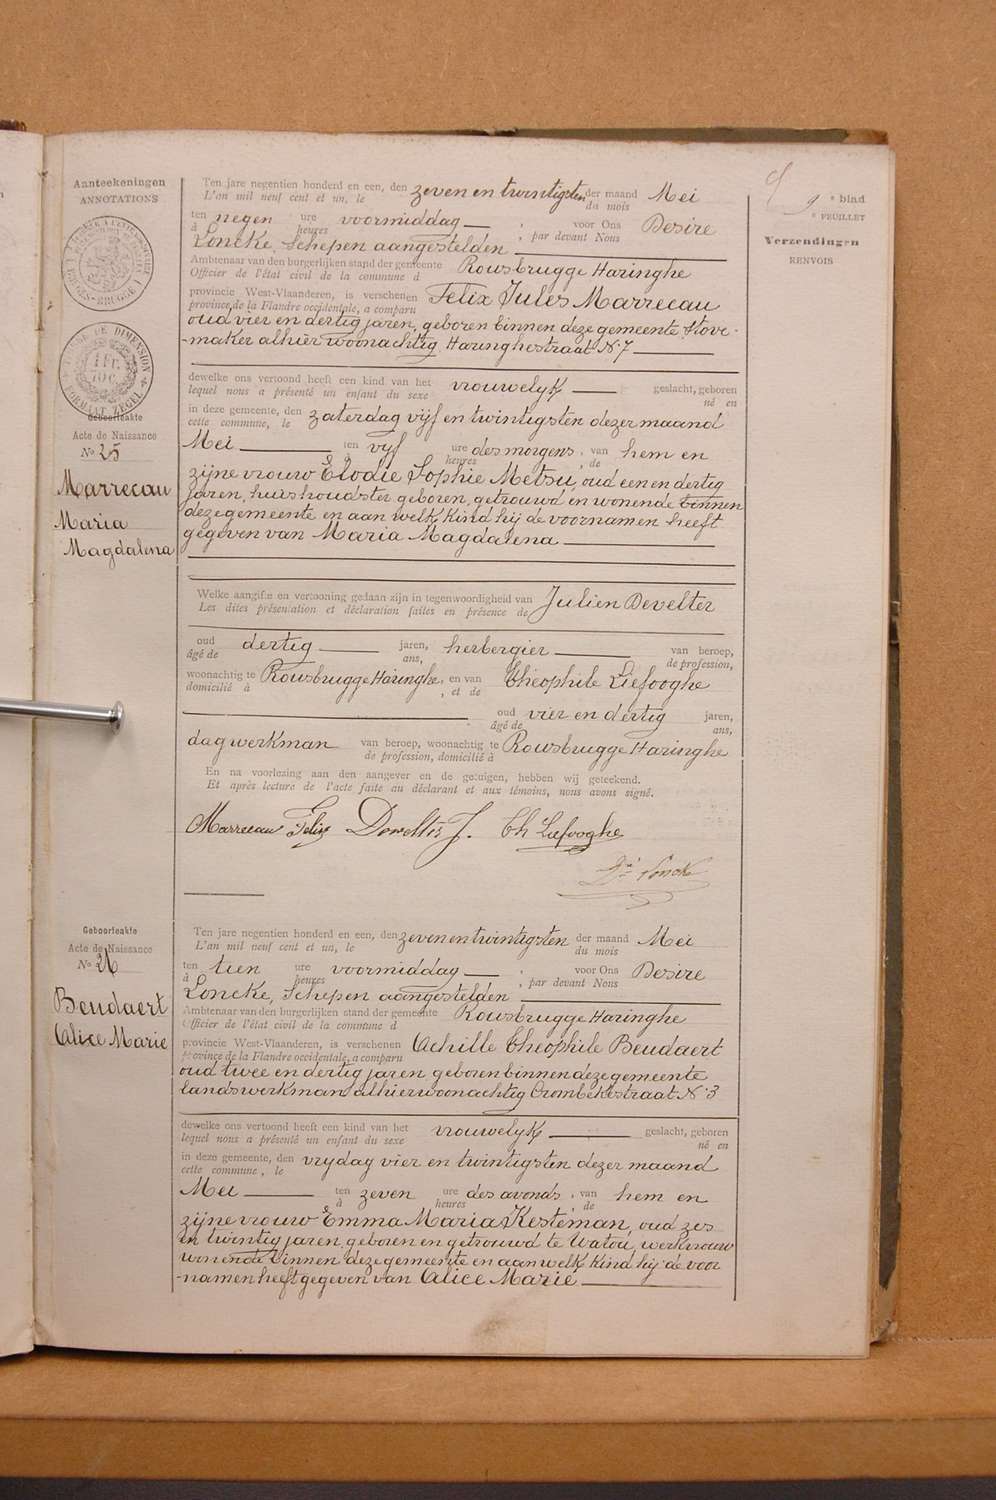 Aanteekeningen
ANNOTATIONS
9e blad
e FEUILLET
Verzendingen
RENVOIS
DE DIMENSION
1 FR.
FORMAAT ZEGEL
Geboorteakte
Acte de Naissance
No 25
Marrecau
Maria
Magdalena
Ten jare negentien honderd en een, den zeven en twintigsten der maand Mei
L'an mil neuf cent et un, le du mois
ten negen ure voormiddag , voor Ons Desire
à heures , par devant Nous
Loncke, Schepen aangestelden
Ambtenaar van den burgerlijken stand der gemeente Rousbrugge Haringhe
Officier de l'état civil de la commune d
provincie West-Vlaanderen, is verschenen Felix Jules Marrecau
province de la Flandre occidentale, a comparu
oud vier en dertig jaren, geboren binnen deze gemeente Stove-
-maker alhier woonachtig Haringhestraat N. 7
dewelke ons vertoond heeft een kind van het vrouwelyk geslacht, geboren
lequel nous a présenté un enfant du sexe né en
in deze gemeente, den zaterdag vijf en twintigsten dezer maand
cette commune, le
Mei ten vijf ure des morgens , van hem en
à heures , de
zijne vrouw Elodie Sophie Metsu, oud een en dertig
jaren, huishoudster geboren, getrouwd en wonende binnen
deze gemeente en aan welk kind hij de voornamen heeft
gegeven van Maria Magdalena
Welke aangifte en vertooning gedaan zijn in tegenwoordigheid van Julien Develter
Les dites présentation et déclaration faites en présence de
oud dertig jaren, herbergier van beroep,
âgé de ans, de profession,
woonachtig te Rousbrugge Haringhe , en van Theophile Liefooghe
domicilié à , et de
oud vier en dertig jaren,
âgé de ans,
dagwerkman van beroep, woonachtig te Rousbrugge Haringhe
de profession, domicilié à
En na voorlezing aan den aangever en de getuigen, hebben wij geteekend.
Et après lecture de l'acte faite au déclarant et aux témoins, nous avons signé.
Marrecau Felix Develter J. Th Liefooghe
Dré Lonck
Geboorteakte
Acte de Naissance
No 26
Beudaert
Alice Marie
Ten jare negentien honderd en een, den zeven en twintigsten der maand Mei
L'an mil neuf cent et un, le du mois
ten tien ure voormiddag , voor Ons Desire
à heures , par devant Nous
Loncke, Schepen aangestelden
Ambtenaar van den burgerlijken stand der gemeente Rousbrugge Haringhe
Officier de l'état civil de la commune d
provincie West-Vlaanderen, is verschenen Achille Theophile Beudaert
province de la Flandre occidentale, a comparu
oud twee en dertig jaren geboren binnen deze gemeente
landswerkman alhier woonachtig Crombekestraat N. 3
dewelke ons vertoond heeft een kind van het vrouwelyk geslacht, geboren
lequel nous a présenté un enfant du sexe né en
in deze gemeente, den vrydag vier en twintigsten dezer maand
cette commune, le
Mei ten zeven ure des avonds , van hem en
à heures , de
zijne vrouw Emma Maria Kesteman, oud zes
en twintig jaren, geboren en getrouwd te Watou, werkvrouw
wonende binnen deze gemeente en aan welk kind hij de voor
-namen heeft gegeven van Alice Marie